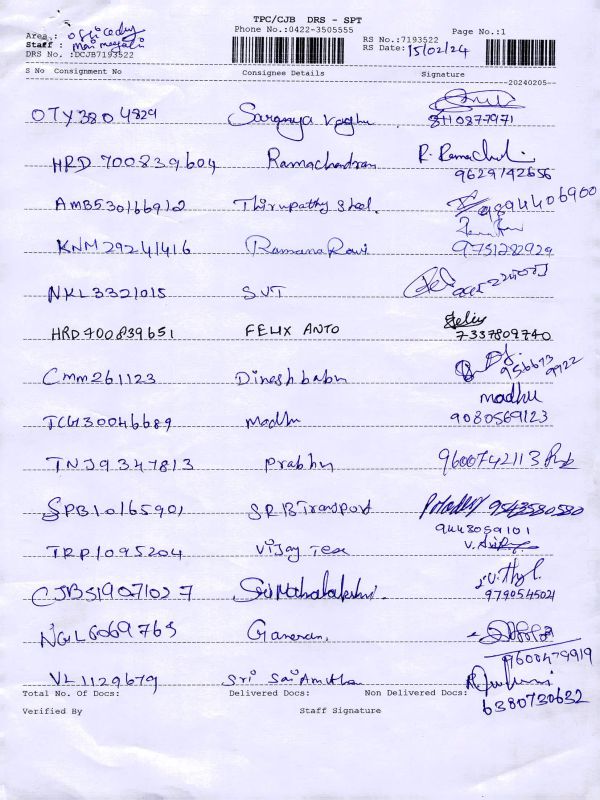 TPC/CJB DRS - SPT
Phone No.:0422-3505555 Page No.:1
Area :
Staff :
RS No.:7193522
RS Date: 15/02/24
DRS No. :DCJB7193522
S No Consignment No Consignee Details Signature
20240205
OTY3804829 Saranya Raghu 8110877971
HRD 700839604 Ramachandran R. Ramachandran 9629742656
AMB530166912 Thirupathy Steel. 9894406900
KNM29241416 Ramana Ravi 9751282929
NKL3321015 SVT
HRD700839651 FELIX ANTO Felix 7337809740
CMM261123 Dineshbabu 9566739922
TCG130046689 Madhu madhu 9080569123
TNJ9347813 Prabhu 9600742113
SPB10165901 S.R.B Transport 9543580580
TRP1095204 Vijay Tex 9443059101
CJB519071027 Sri Mahalakshmi. 979054504
NGL6069765 Ganesan. 9600479919
VL1129679 Sri Sai Amutha 6380730632
Total No. Of Docs: Delivered Docs: Non Delivered Docs:
Verified By Staff Signature